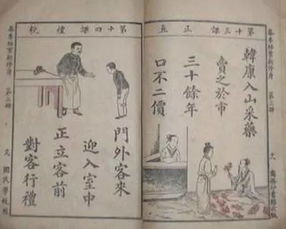 第十三課 正直
韓康入山采藥
賣之於市
三十餘年
口不二價
第十四課 禮貌
門外客來
迎入室中
正立客前
對客行禮